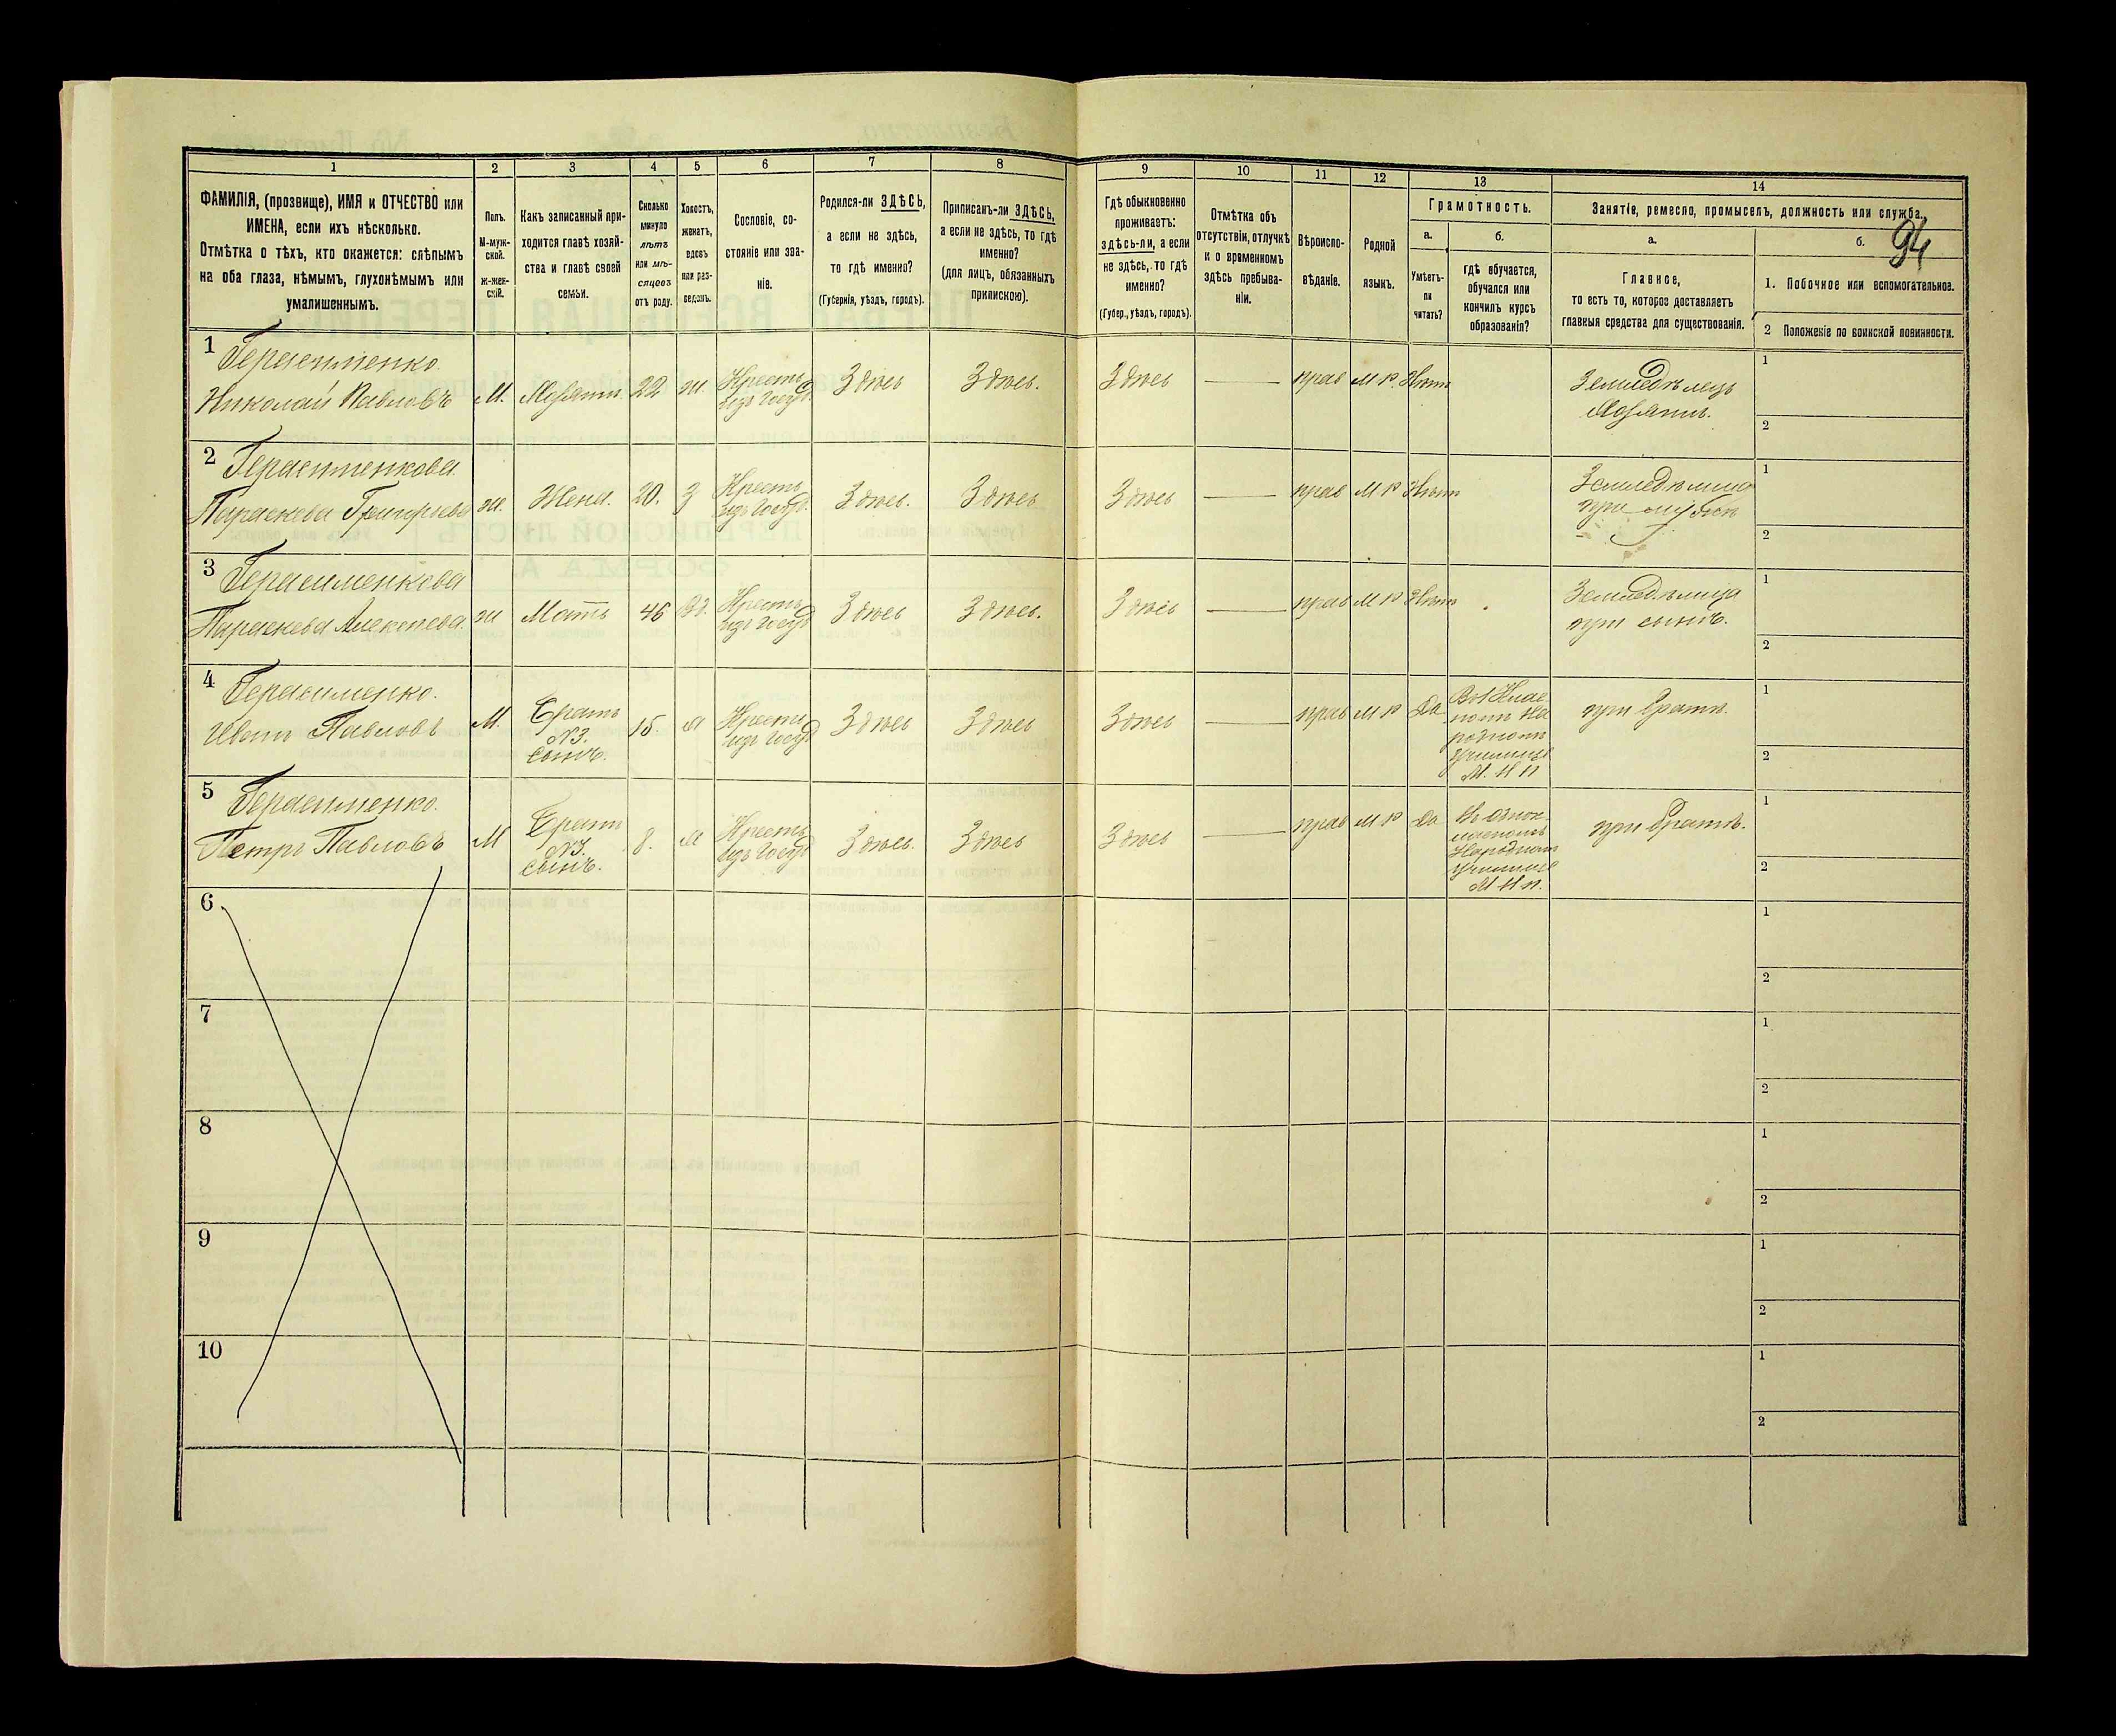 94
1 2 3 4 5 6 7 8 9 10 11 12 13 14
ФАМИЛІЯ, (прозвище), ИМЯ и ОТЧЕСТВО или
ИМЕНА, если ихъ нѣсколько.
Отмѣтка о тѣхъ, кто окажется: слѣпымъ
на оба глаза, нѣмымъ, глухонѣмымъ или
умалишеннымъ.
Полъ.
М-муж-
ской.
Ж-жен-
скій.
Какъ записанный при-
ходится главѣ хозяй-
ства и главѣ своей
семьи.
Сколько
минуло
лѣтъ
или мѣ-
сяцевъ
отъ роду.
Холостъ,
женатъ,
вдовъ
или раз-
веденъ.
Сословіе, со-
стояніе или зва-
ніе.
Родился-ли ЗДѢСЬ,
а если не здѣсь,
то гдѣ именно?
(Губернія, уѣздъ, городъ).
Приписанъ-ли ЗДѢСЬ,
а если не здѣсь, то гдѣ
именно?
(для лицъ, обязанныхъ
припискою).
Гдѣ обыкновенно
проживаетъ:
здѣсь-ли, а если
не здѣсь, то гдѣ
именно?
(Губер., уѣздъ, городъ).
Отмѣтка объ
отсутствіи, отлучкѣ
и о временномъ
здѣсь пребыва-
ніи.
Вѣроиспо-
вѣданіе.
Родной
языкъ.
Грамотность.
а.
Умѣетъ-
ли
читать?
б.
гдѣ обучается,
обучался или
кончилъ курсъ
образованія?
Занятіе, ремесло, промыселъ, должность или служба.
а.
Главное,
то есть то, которое доставляетъ
главныя средства для существованія.
б.
1. Побочное или вспомогательное.
2 Положеніе по воинской повинности.
1 Герасименко.
Николай Павловъ М. Хозяинъ 22 ж. Крестъ. изъ Госуд. Здѣсь Здѣсь. Здѣсь — прав М Р. Нѣтъ
Земледѣлецъ
Хозяинъ.
1
2
2 Герасименкова
Параскева Григорьева ж. Жена. 20. З Крестъ. изъ Госуд. Здѣсь. Здѣсь Здѣсь — прав М Р Нѣтъ
Земледѣлица
при мужѣ
1
2
3 Герасименкова
Параскева Алексѣева ж Мать 46 Вд. Крестъ. изъ Госуд Здѣсь Здѣсь. Здѣсь — прав М Р Нѣтъ
Земледѣлица
при сынѣ.
1
2
4 Герасименко.
Иванъ Павловъ М. Братъ N3. сынъ. 15. Х Крестъ. изъ Госуд Здѣсь Здѣсь Здѣсь — прав М Р Да
Въ 1 Клас
номъ На
родномъ
Училищѣ
М. Н П
при братѣ.
1
2
5 Герасименко.
Петръ Павловъ М Братъ N3. сынъ. 8. Х Крестъ. изъ Госуд Здѣсь. Здѣсь Здѣсь — прав М Р Да
Въ однок
ласномъ
Народномъ
училищѣ
М Н П.
при братѣ.
1
2
6
1
2
7
1
2
8
1
2
9
1
2
10
1
2